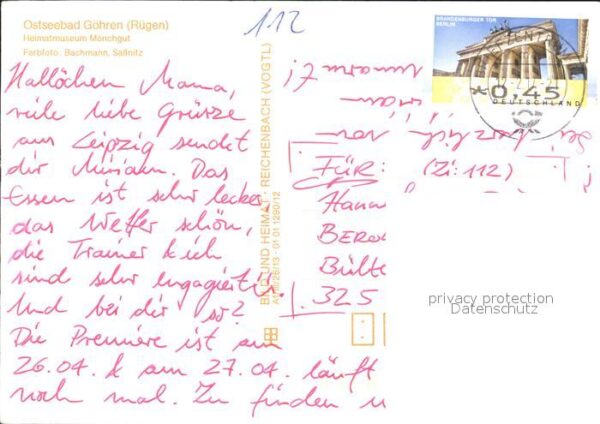 Ostseebad Göhren (Rügen)
Heimatmuseum Mönchgut
Farbfoto: Bachmann, Saßnitz
112
Hallöchen Mama,
viele liebe Grüsze
aus Leipzig sendet
dir Miriam. Das
Essen ist sehr lecker,
das Wetter schön,
die Trainer & ich
sind sehr engagiert.
Und bei dir so?
Die Premiere ist am
26.04. & am 27.04. läuft
noch mal. Zu finden u
BILD UND HEIMAT · REICHENBACH (VOGTL)
01 01 1290/12
BRANDENBURGER TOR
BERLIN
*0,45
DEUTSCHLAND
Sei herzlich von
umarmt!
FÜR: (Zi: 112)
Hann
BERG
Bülte
325
privacy protection
Datenschutz